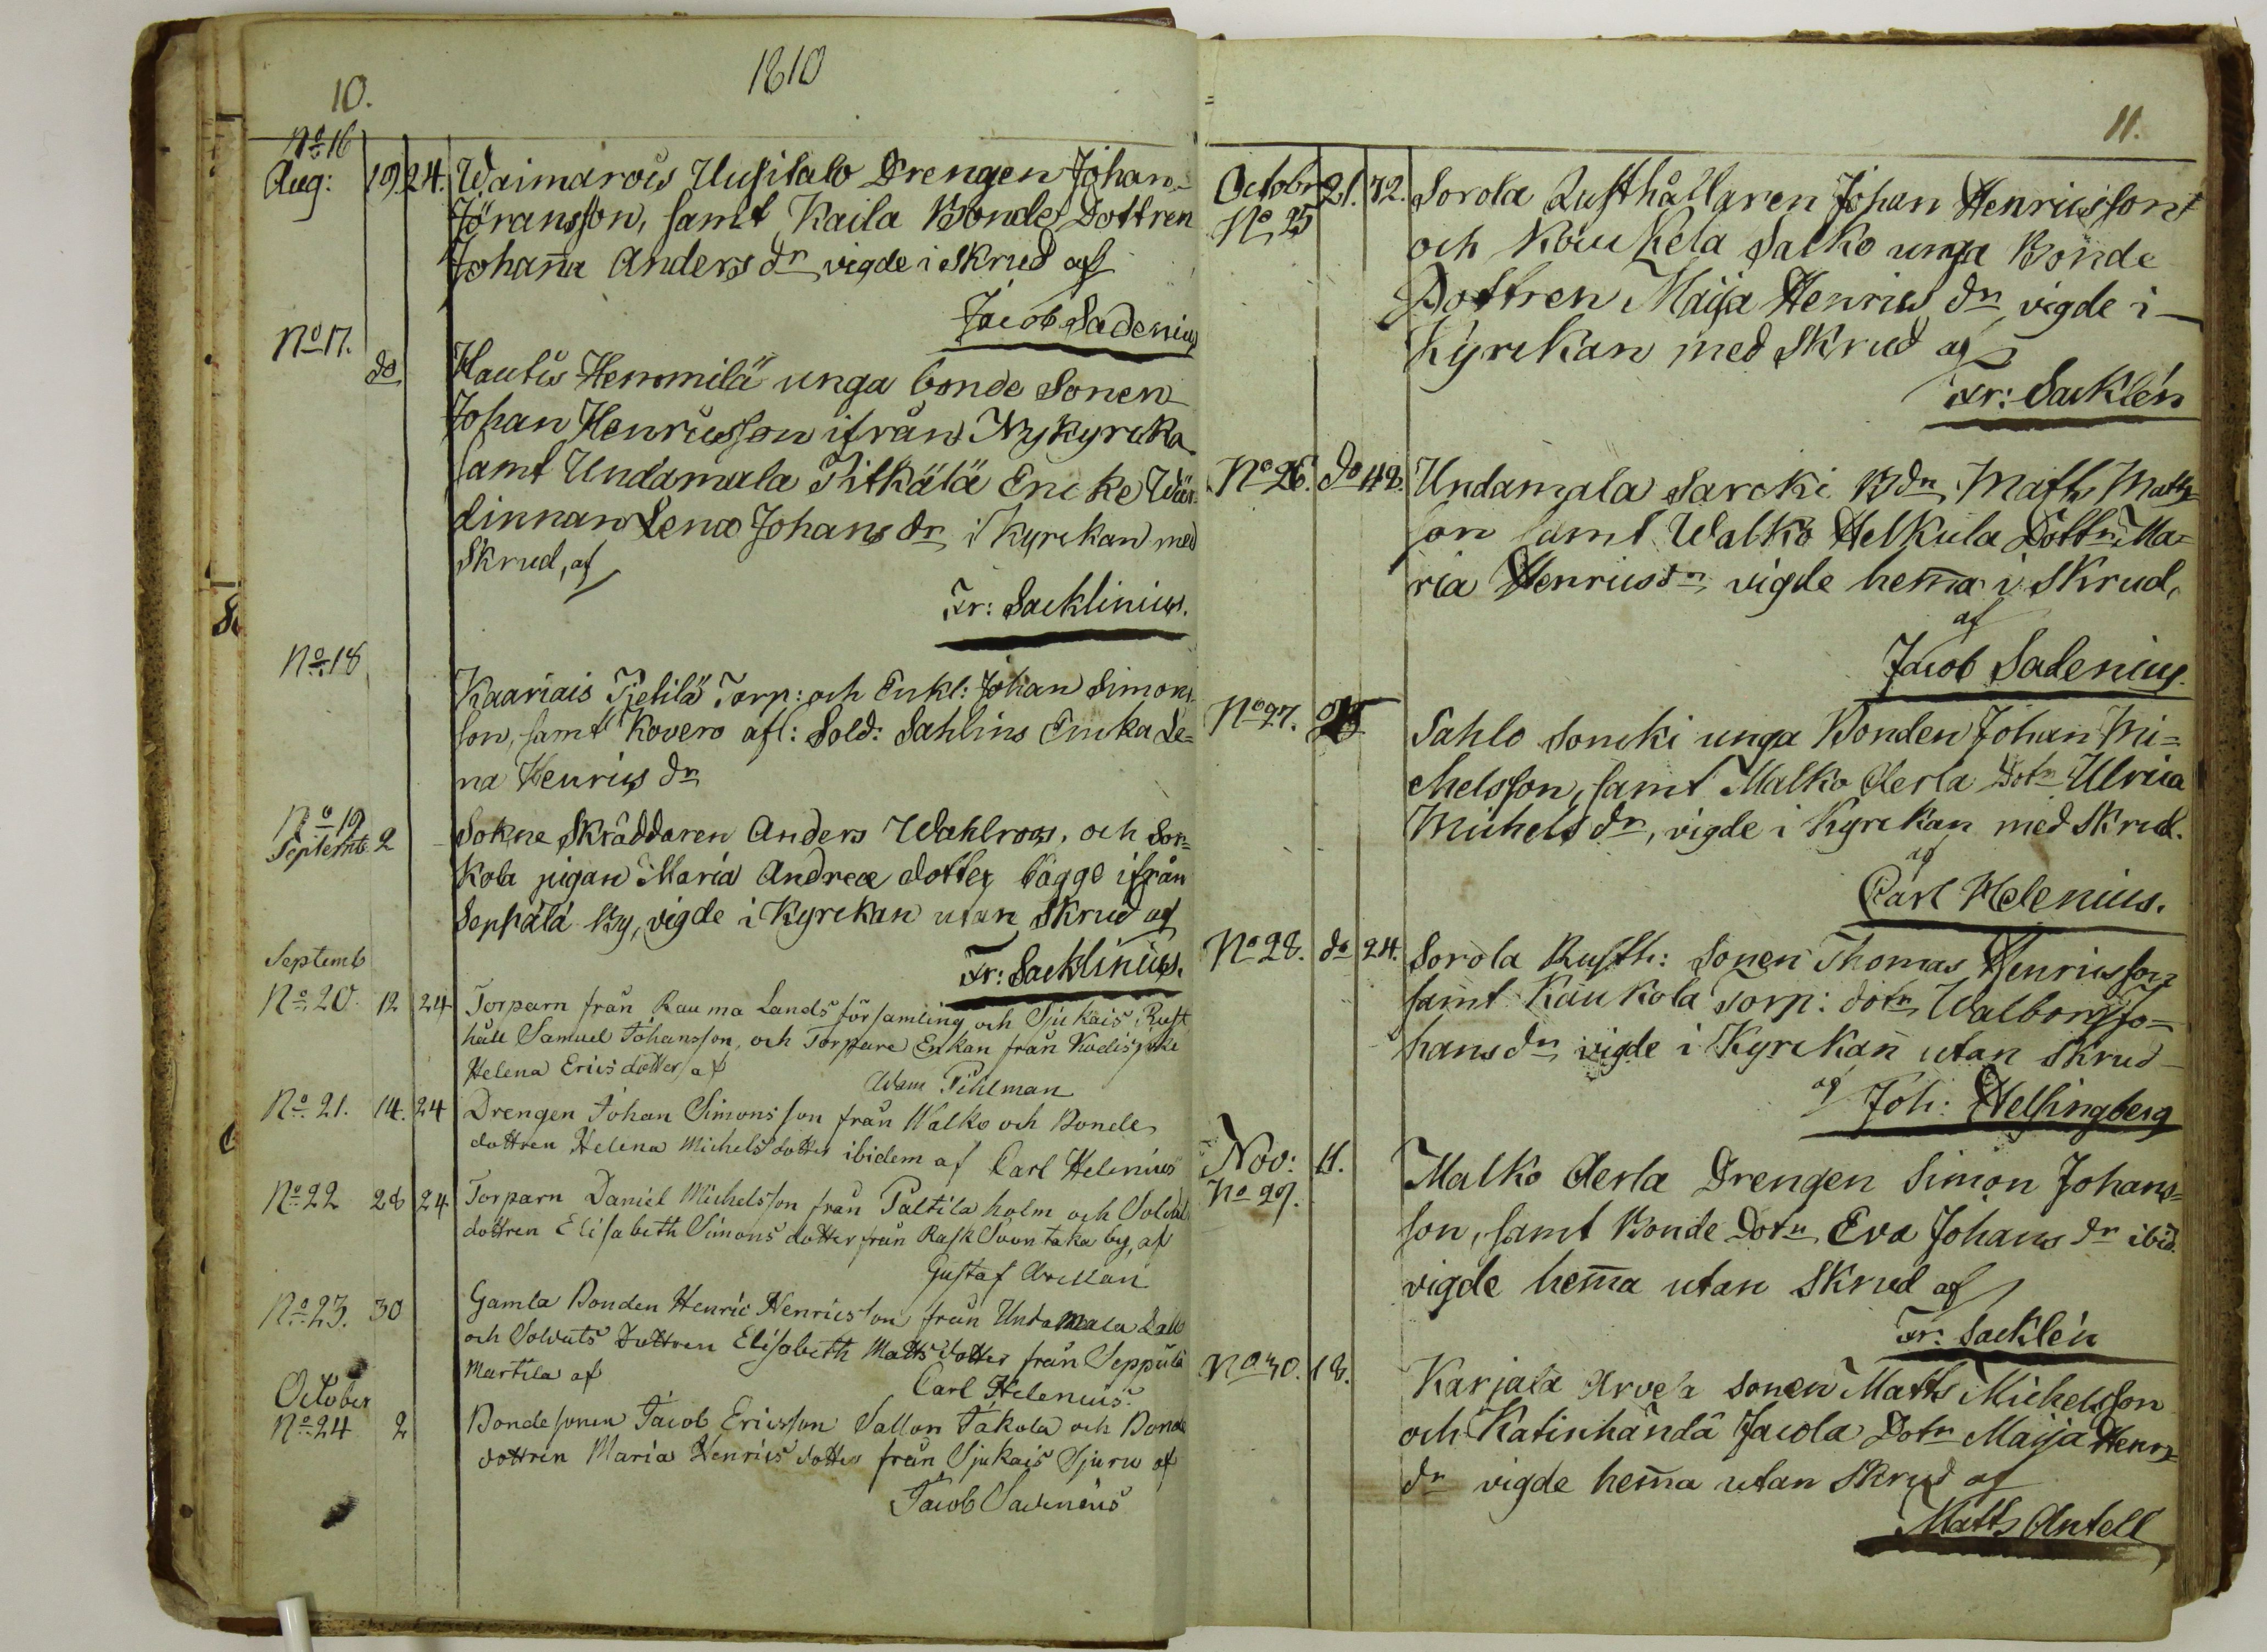 10.
1810
No 16
Aug: 19 24. Waimarois Uusitalo Drengen Johan
Jöransson, samt Kaila Bonde Dottren
Johan̄a Anders dr vigde i skrud af
Jacob Sadenius
No 17. do Hautis Hemmilä unga bonde Sonen
Johan Henricsson ifrån Nykyrcka
samt Undamala Pitkälä Encke Wär-
dinnan Lena Johans dr i Kyrckan med
Skrud, af
Fr: Sacklinius.
No 18
Kaariais Pietilä Torp: och Enkl: Johan Simons-
son, samt Kovero afl: Sold: Sahlins Encka Le=
na Henrics dr
No 19
Septemb 2 Sokne Skräddaren Anders Wahlroos, och Sor=
kola pigan Maria Andreæ dotter bägge ifrån
Seppälä By, vigde i Kyrckan utan skrud af
Fr: Sacklinius.
Septemb
No 20. 12 24 Torparn från Rauma Lands församling och Sjukais Rust
håll Samuel Johansson, och Torpare Enkan från Kodisjoki
Helena Ericsdotter af
Adam Pihlman
No 21. 14. 24 Drengen Johan Simonsson från Walko och Bonde
dottren Helena Michelsdotter ibidem af Carl Helenius
No 22 28 24. Torparn Daniel Michelsson från Paltila holm och Soldat
dottren Elisabeth Simons dotter från Rask Suontaka by, af
Gustaf Avellan
No 23. 30 Gamla Bonden Henric Henricsson från Undamala Lall
och Soldats Dottren Elisabeth Matts dotter från Seppälä
Martila af
Carl Helenius.
October
No 24 2 Bondesonen Jacob Ericsson Sallon Jakola och Bonde
dottren Maria Henrics dotter från Sjukais Sjuru af
Jacob Sadenius
11.
Octobr 21. 72. Sorola Rusthållaren Johan Henricsson
No 25 och Koukela Salko unga Bonde
Dottren Maija Henrics dr, vigde i
Kyrckan med Skrud af
Fr: Sacklén
No 26. do 48. Undamala Sarcki Bdn Math Matts
son samt Walko Helkula Dottrn Ma=
ria Henricsdr vigde hem̄a i Skrud,
af
Jacob Sadenius.
No 27. Sahlo Soncki unga Bonden Johan Mi=
chelsson, samt Malko Aerla Dotn Ulrica
Michels dr, vigde i Kyrckan med Skrud.
af
Carl Helenius.
No 28. do 24. Sorola Rusth: Sonen Thomas Henricsson
samt Kaukola Torp: dotn Walborg Jo=
hans dr vigde i Kyrckan utan Skrud
af Joh: Helsingberg
Nov: 11. Malko Aerla Drengen Simon Johans=
No 29. son, samt Bonde Dotn Eva Johans dr ibid.
vigde hem̄a utan Skrud af
Fr: Sacklén
No 30. 18. Karjala Arvela sonen Matts Michelsson
och Katinhändä Jacola Dotn Maija Henrs
dr vigde hem̄a utan Skrud af
Matts Antell